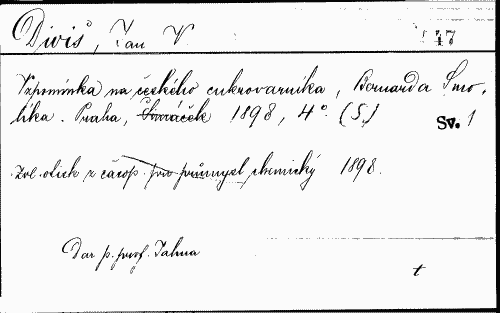 Diviš, Jan V 47
Vzpomínka na českého cukrovarníka, Bernarda Smo-
líka. Praha, 1898, 4°. (S.) Sv. 1
Zvl. otisk z časop. pro průmysl chemický 1898.
Dar p. prof. Jahna
t